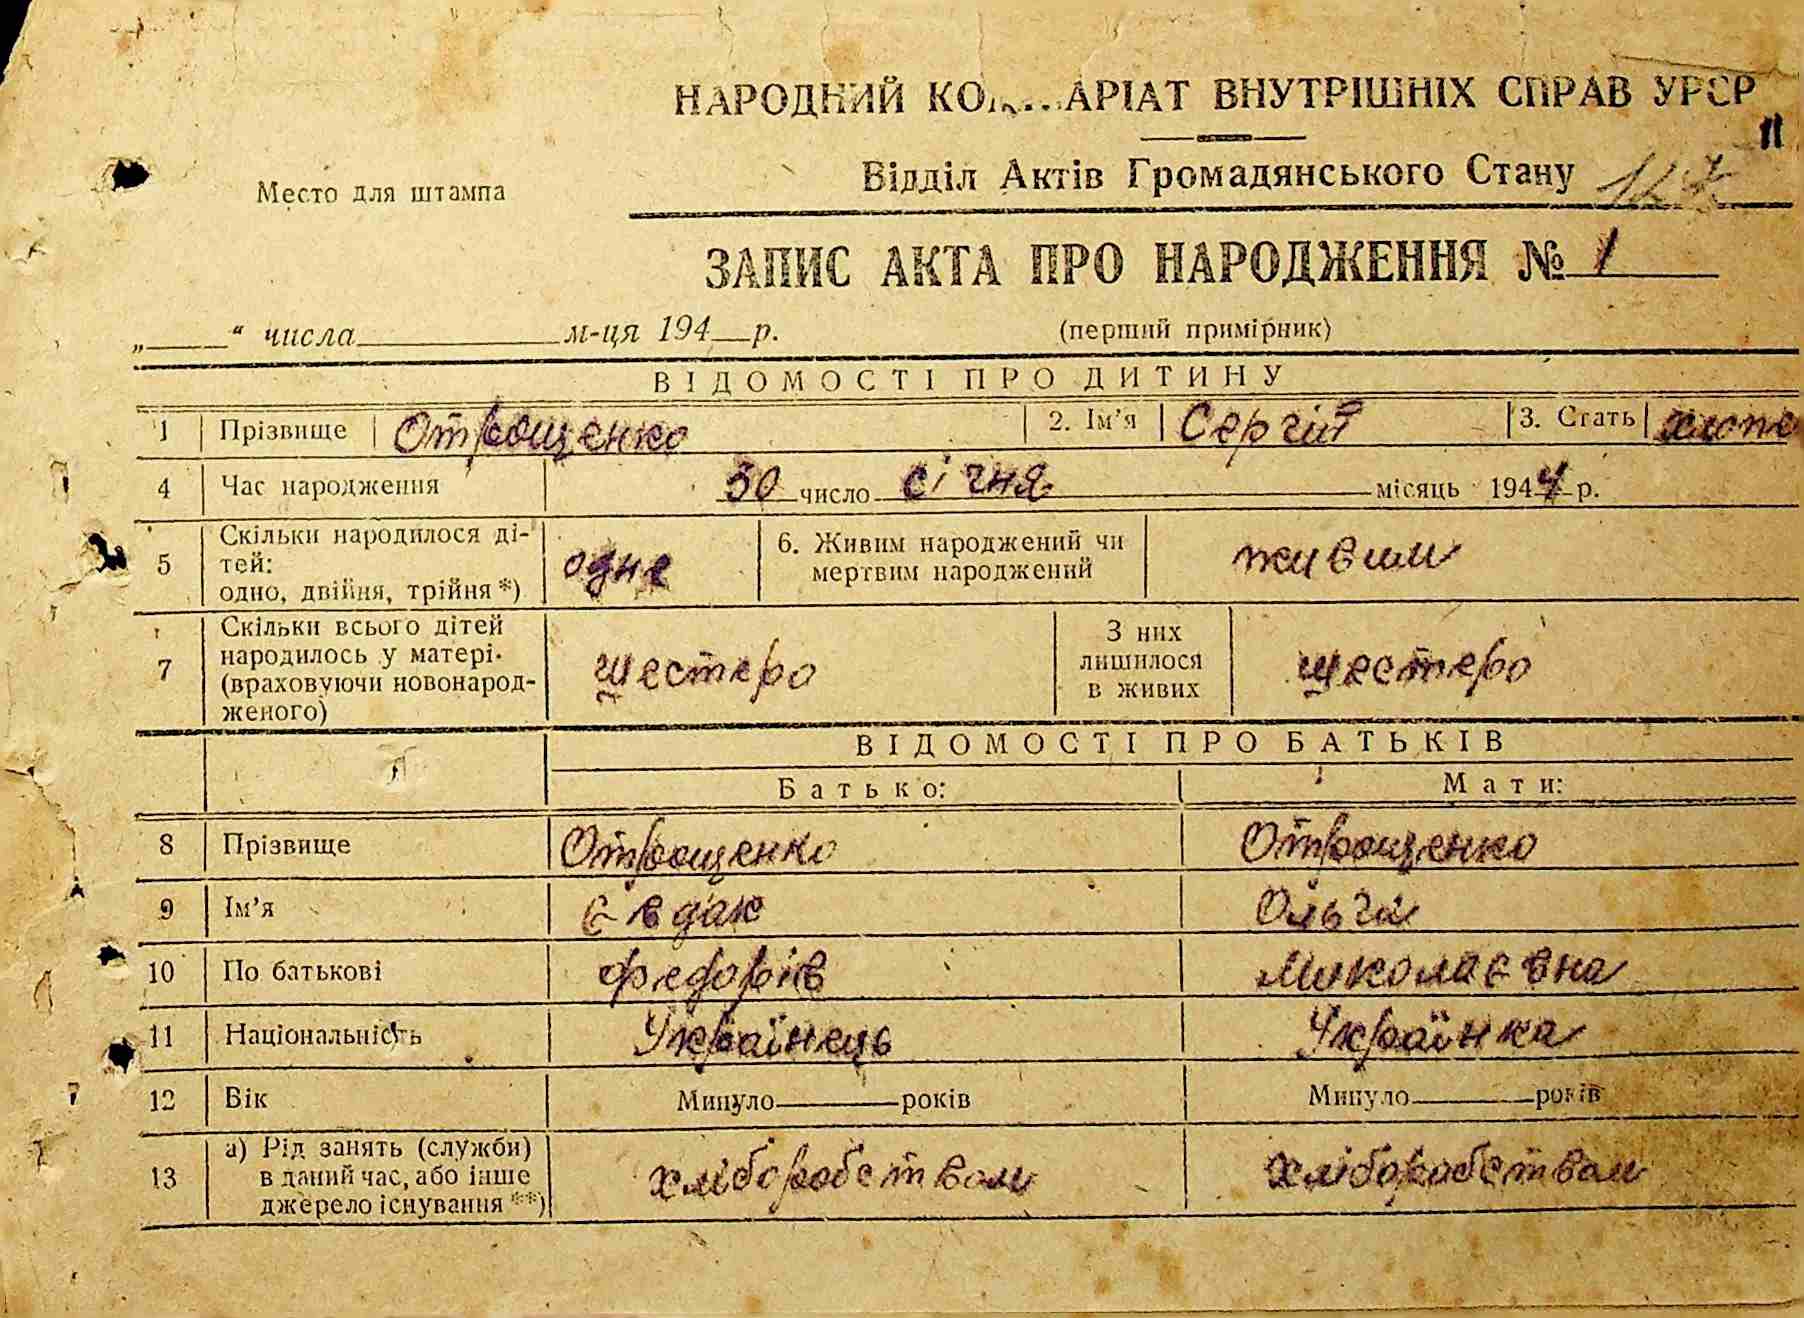 НАРОДНИЙ КОМ...АРІАТ ВНУТРІШНІХ СПРАВ УРСР
11
Место для штампа
Відділ Актів Громадянського Стану
ЗАПИС АКТА ПРО НАРОДЖЕННЯ № 1
„____“ числа ________ м-ця 194__ р. (перший примірник)
ВІДОМОСТІ ПРО ДИТИНУ
1 Прізвище Отрощенко 2. Ім’я Сергій 3. Стать хлопе
4 Час народження 30 число січня місяць 1944 р.
5 Скільки народилося ді-
тей:
одно, двійня, трійня *) одне 6. Живим народжений чи
мертвим народжений живим
7 Скільки всього дітей
народилось у матері
(враховуючи новонарод-
женого) шестеро З них
лишилося
в живих шестеро
ВІДОМОСТІ ПРО БАТЬКІВ
Батько: Мати:
8 Прізвище Отрощенко Отрощенко
9 Ім’я Євдак Ольга
10 По батькові Федорів Миколаєвна
11 Національність Українець Українка
12 Вік Минуло ____ років Минуло ____ років
13 а) Рід занять (служби)
в даний час, або інше
джерело існування **) хліборобством хліборобством